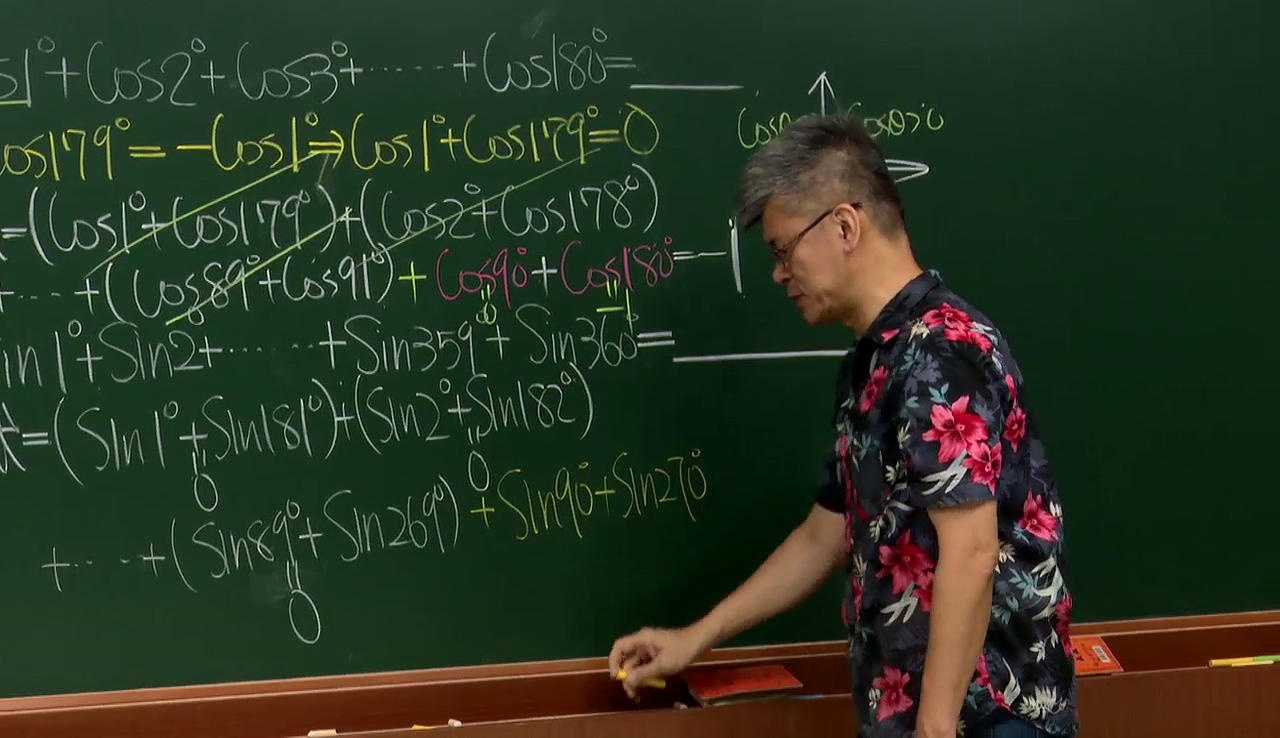 s1°+Cos2°+Cos3°+......+Cos180°=
os179°=-Cos1°⇒Cos1°+Cos179°=0
=(Cos1°+Cos179°)+(Cos2°+Cos178°)
...+(Cos89°+Cos91°)+Cos90°+Cos180°=-1
0 -1
in1°+Sin2+......+Sin359°+Sin360°=
=(Sin1°+Sin181°)+(Sin2°+Sin182°)
0 0
+....+(Sin89°+Sin269°)+Sin90°+Sin270°
0
Cosθ>0